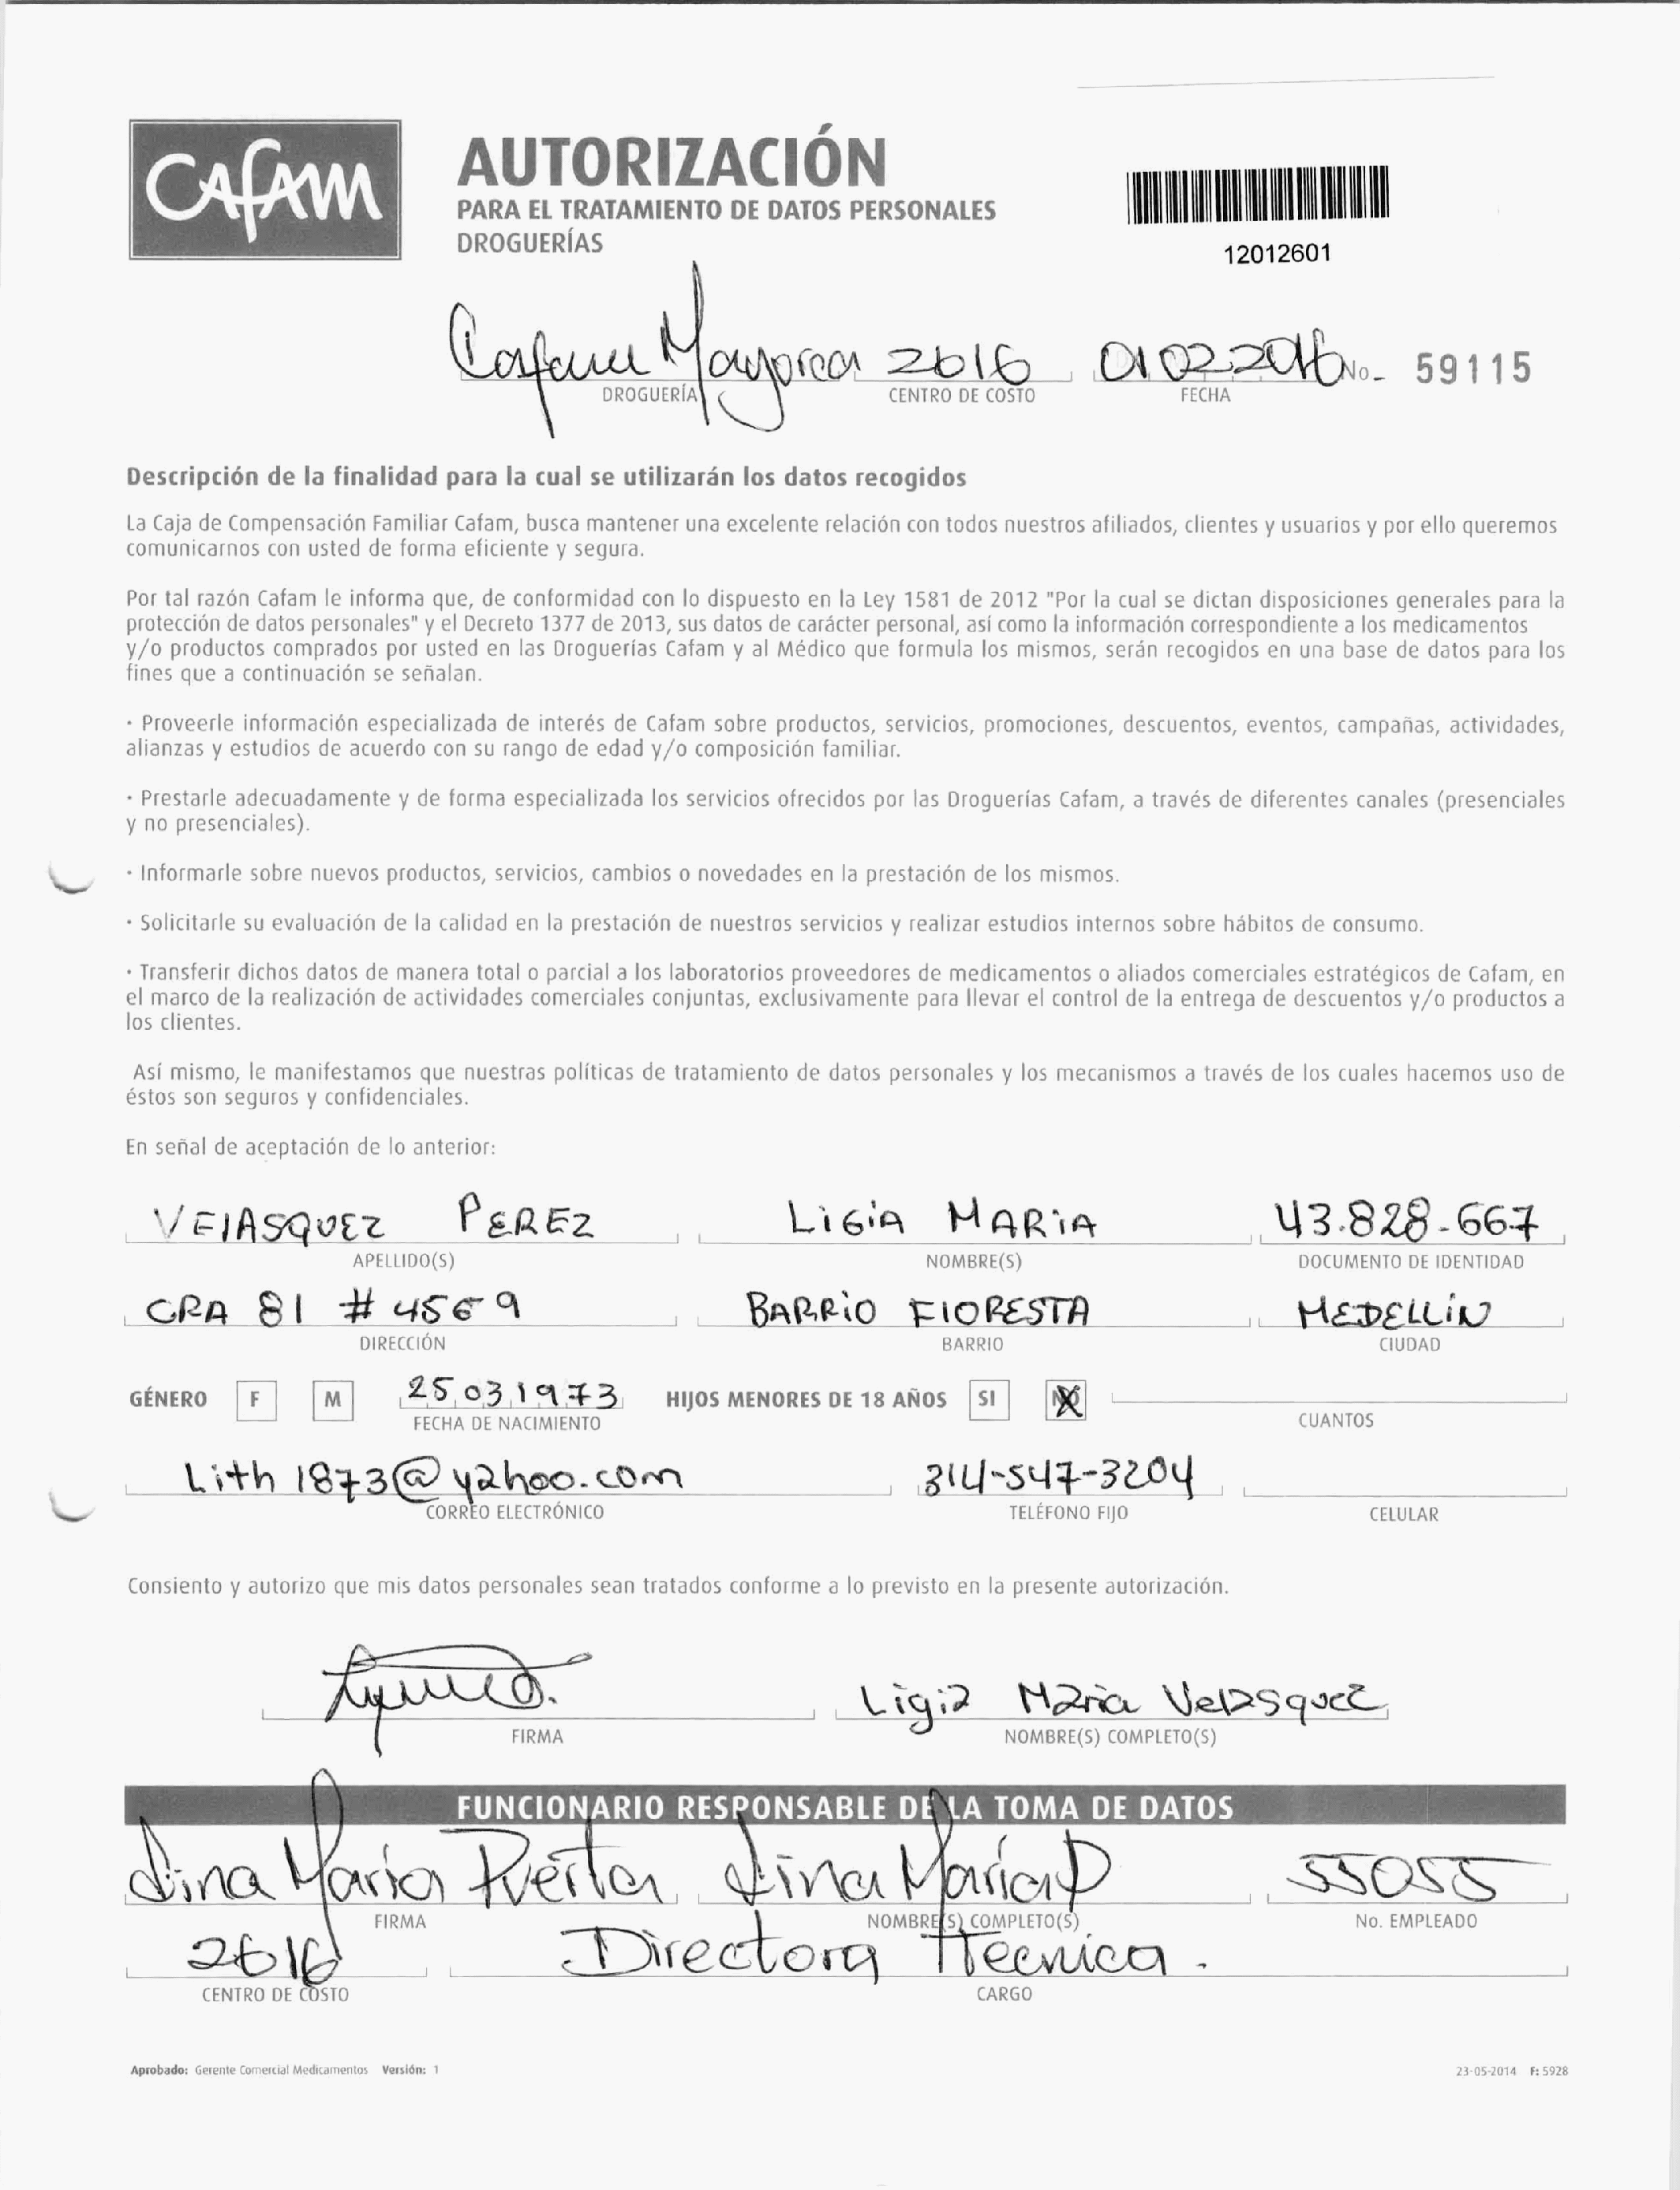 CAFAM
AUTORIZACIÓN
PARA EL TRATAMIENTO DE DATOS PERSONALES
DROGUERÍAS
12012601
Cafam Mayorca 2616 01022016 No. 59115
DROGUERÍA CENTRO DE COSTO FECHA
Descripción de la finalidad para la cual se utilizarán los datos recogidos
La Caja de Compensación Familiar Cafam, busca mantener una excelente relación con todos nuestros afiliados, clientes y usuarios y por ello queremos
comunicarnos con usted de forma eficiente y segura.
Por tal razón Cafam le informa que, de conformidad con lo dispuesto en la Ley 1581 de 2012 "Por la cual se dictan disposiciones generales para la
protección de datos personales" y el Decreto 1377 de 2013, sus datos de carácter personal, así como la información correspondiente a los medicamentos
y/o productos comprados por usted en las Droguerías Cafam y al Médico que formula los mismos, serán recogidos en una base de datos para los
fines que a continuación se señalan.
· Proveerle información especializada de interés de Cafam sobre productos, servicios, promociones, descuentos, eventos, campañas, actividades,
alianzas y estudios de acuerdo con su rango de edad y/o composición familiar.
· Prestarle adecuadamente y de forma especializada los servicios ofrecidos por las Droguerías Cafam, a través de diferentes canales (presenciales
y no presenciales).
· Informarle sobre nuevos productos, servicios, cambios o novedades en la prestación de los mismos.
· Solicitarle su evaluación de la calidad en la prestación de nuestros servicios y realizar estudios internos sobre hábitos de consumo.
· Transferir dichos datos de manera total o parcial a los laboratorios proveedores de medicamentos o aliados comerciales estratégicos de Cafam, en
el marco de la realización de actividades comerciales conjuntas, exclusivamente para llevar el control de la entrega de descuentos y/o productos a
los clientes.
Así mismo, le manifestamos que nuestras políticas de tratamiento de datos personales y los mecanismos a través de los cuales hacemos uso de
éstos son seguros y confidenciales.
En señal de aceptación de lo anterior:
VElASQUEZ PEREZ LIGiA MARiA 43.828.667
APELLIDO(S) NOMBRE(S) DOCUMENTO DE IDENTIDAD
CRA 81 # 45E 9 BARRiO FlORESTA MEDELLiN
DIRECCIÓN BARRIO CIUDAD
GÉNERO F M 25 03 1973 HIJOS MENORES DE 18 AÑOS SI NO
FECHA DE NACIMIENTO CUANTOS
Lith 1873@yahoo.com 314-547-3204
CORREO ELECTRÓNICO TELÉFONO FIJO CELULAR
Consiento y autorizo que mis datos personales sean tratados conforme a lo previsto en la presente autorización.
Ligia Maria Velasquez
FIRMA NOMBRE(S) COMPLETO(S)
FUNCIONARIO RESPONSABLE DE LA TOMA DE DATOS
Lina Maria Puerta Lina Maria P 55055
FIRMA NOMBRE(S) COMPLETO(S) No. EMPLEADO
2616 Directora Tecnica.
CENTRO DE COSTO CARGO
Aprobado: Gerente Comercial Medicamentos Versión: 1 23-05-2014 F: 5928